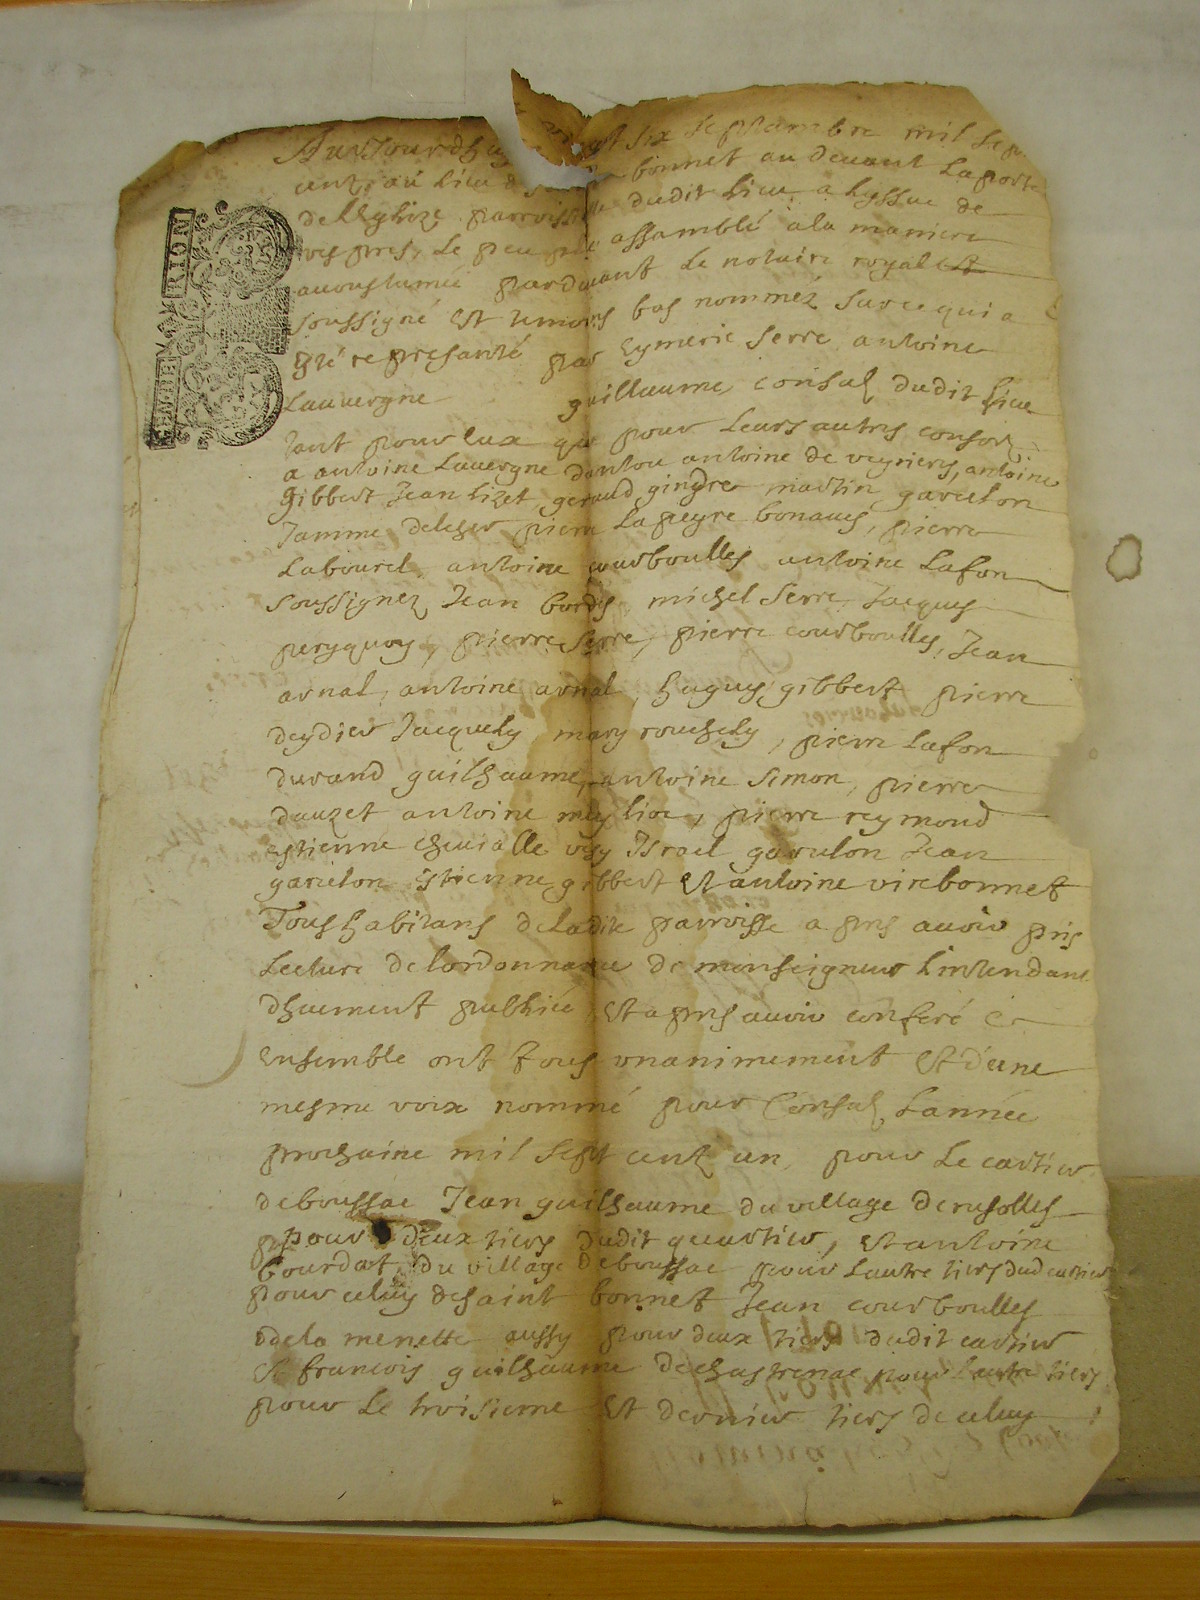 Aujourdhuy vingt six septambre mil sept
cent, au lieu de saint bonnet au devant la porte
de lleglize parroissielle dudit lieu a lyssue de
vespres, le peuple assamblé a la maniere
acoustumée pardevant le notaire royal
soussigné et temoins bas nommez sur ce qui a
esté represanté par Eymeric Serre antoine
Lauvergne guillaume, consulz dudit lieu
tant pour eux que pour leurs autres consorz
a antoine Lauvergne dantou antoine de veyrieres, antoine
Gibbert Jean lizet geraud gingre martin garcelon
Jamme deleger pierre Lapeyre bonaves, pierre
Labourel, antoine courboulles antoine Lafon
soussignez Jean bordes, michel Serre, Jacques
peryquoy, pierre Serre, pierre courboulles, Jean
arnal, antoine arnal, hugues gibbert pierre
deydier Jacques mary rouchely, pierre Lafon
durand guilhaume, antoine Simon, pierre
dauzet antoine meylior, pierre reymond
estienne chevialle Israel garcelon Jean
garcelon estienne gibbert et antoine virebonnet
Tous habitans deladite parroisse apres avoir pris
Lecture de lordonnance de monseigneur lintendant
dhuement publiée, et apres avoir conferé
ensemble ont tous unanimement et d'une
mesme voix nommé pour Consulz lannée
prochaine mil sept cent un, pour le cartier
de boussac Jean guilhaume du village de rusolles
pour deux tiers dudit quartier, et antoine
bourdat du village deboussac pour lautre tiers dud cartier
pour celuy desaint bonnet Jean courboulles
dela menette aussy pour deux tiers dudit cartier
et francois guilhaume de chastrenac pour lautre tiers
pour le troisieme et dernier tiers de celuy